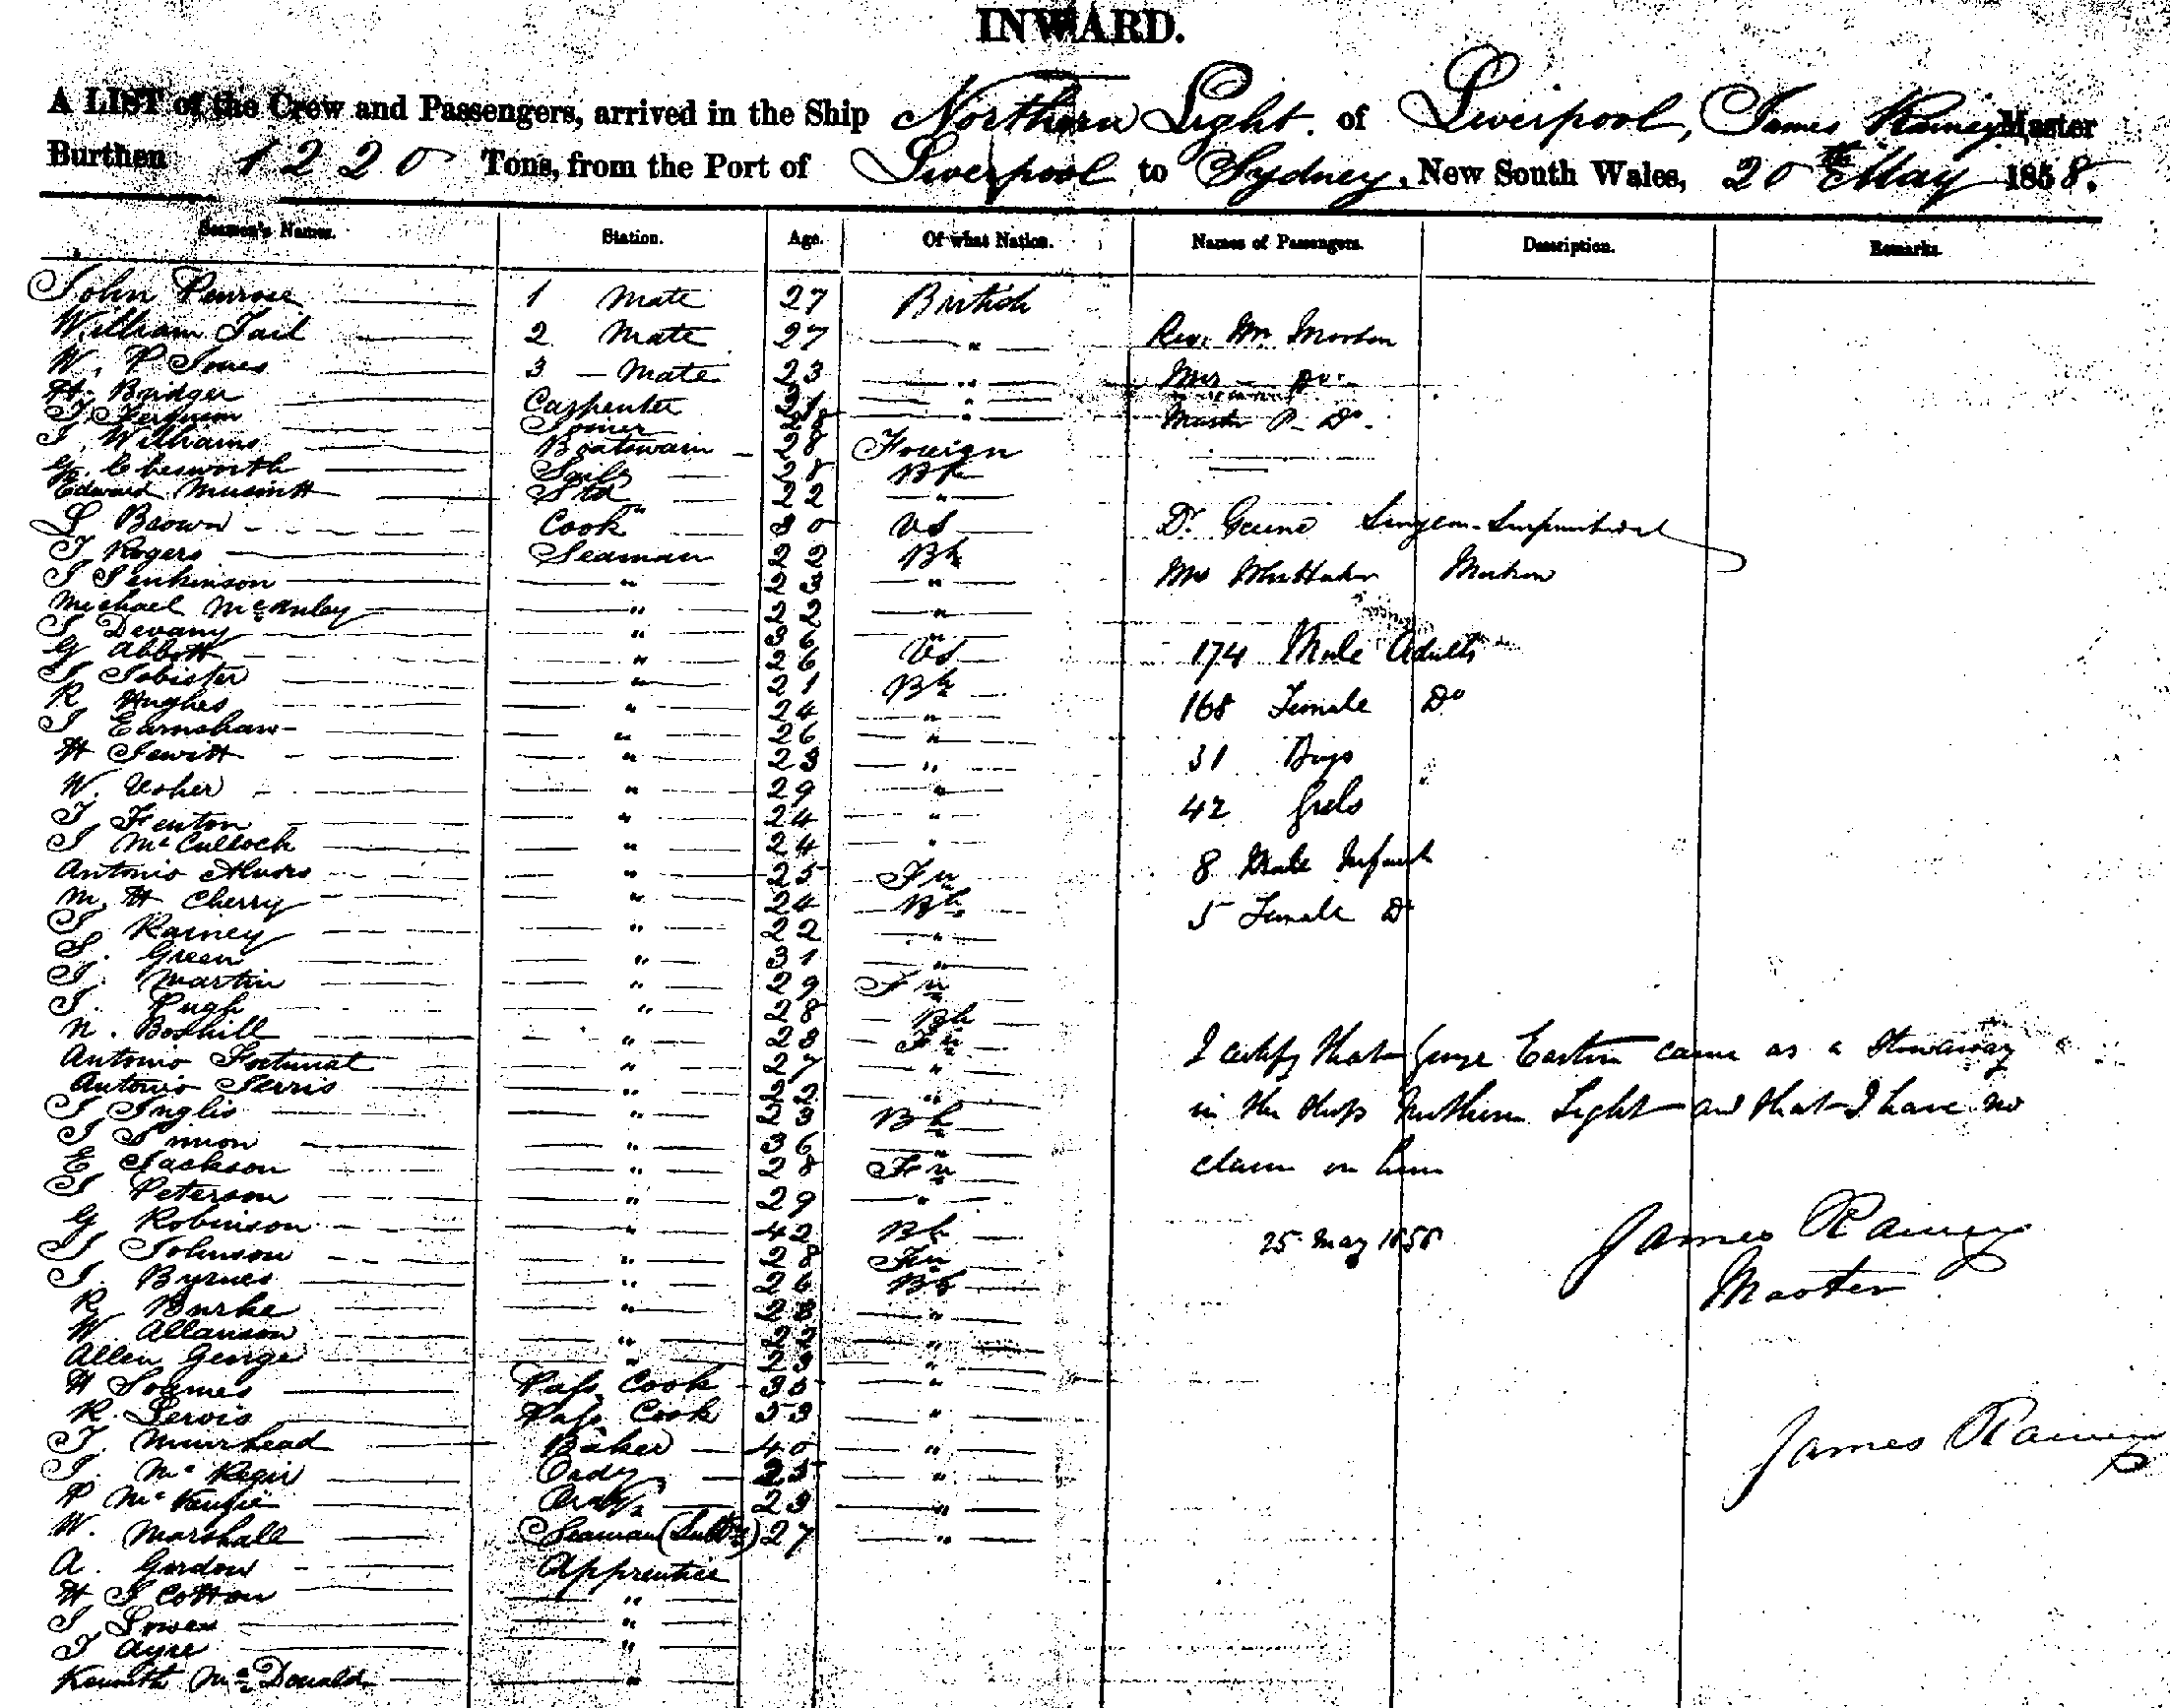 INWARD.
A LIST of the Crew and Passengers, arrived in the Ship Northern Light of Liverpool, James Rainey Master
Burthen 1220 Tons, from the Port of Liverpool to Sydney, New South Wales, 20th May 1858.
Seamen's Names. Station. Age. Of what Nation. Names of Passengers. Description. Remarks.
John Penrose 1 Mate 27 British
William Tait 2 Mate 27 " Rev. Mr Morton
W. P Jones 3 Mate 23 " Mrs Do.
H. Bridger Carpenter "
Joiner " Master P. Do.
J. Williams Boatswain 28 Foreign
G. Chesworth Sails 28 Bh
Edward Std 22 "
L Brown Cook 30 US Dr. Surgeon-Superintendent
J Rogers Seaman 22 Bh
J Jenkinson " 23 " Mrs Whittaker Matron
Michael McAnley " 22 "
J Devany " 26 "
G Abbott " 26 US 174 Male Adults
J Isbister " 21 Bh
R Hughes " 24 " 168 Female Do
J Earnshaw " 26 "
H Jewitt " 23 " 31 Boys
W. Usher " 29 " "
J Fenton " 24 " 42 Girls
J McCulloch " 24 "
Antonio " 25 Fn 8 Male Infants
M. H Cherry " 24 Bh
J Rainey " 22 " 5 Female Do
S. Green " 31 "
J. Martin " 29 Fn
J. Pugh " 28 Bh
N. Boshill " 23 Fn
Antonio Fortunat " 27 "
Antonio Ferris " 22 "
J Inglis " 23 Bh
J " 36 "
E Jackson " 28 Fn
J Peterson " 29 "
G Robinson " 42 Bh
J Johnson " 28 Fn
J. Byrnes " 26 Bh
R Burke " 28 "
W. Allanson " 22 "
Allen George " 23 "
H Soames Pass. Cook 35 "
R. Pass. Cook 53 "
J. Muirhead Baker 40 "
J. Mc Ordy 25 "
P Mc Ordy 23 "
W. Marshall Seaman 27 "
A. Gordon Apprentice
H J Cotton "
J Lowen "
J Ayre "
Kenneth McDonald "
I certify that George Easton came as a Stowaway
in the Ship Northern Light and that I have no
claim on him
25 May 1858 James Rainey
Master
James Rainey